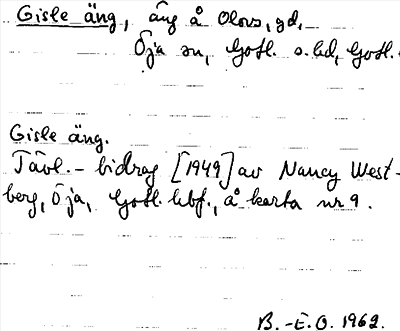 Gisle äng, äng å Olovs, gd,
Öja sn, Gotl. s. hd, Gotl.
Gisle äng.
Tävl. - bidrag [1949] av Nancy West-
berg, Öja, Gotl. hbf., å karta nr 9.
B.-E.O. 1962.